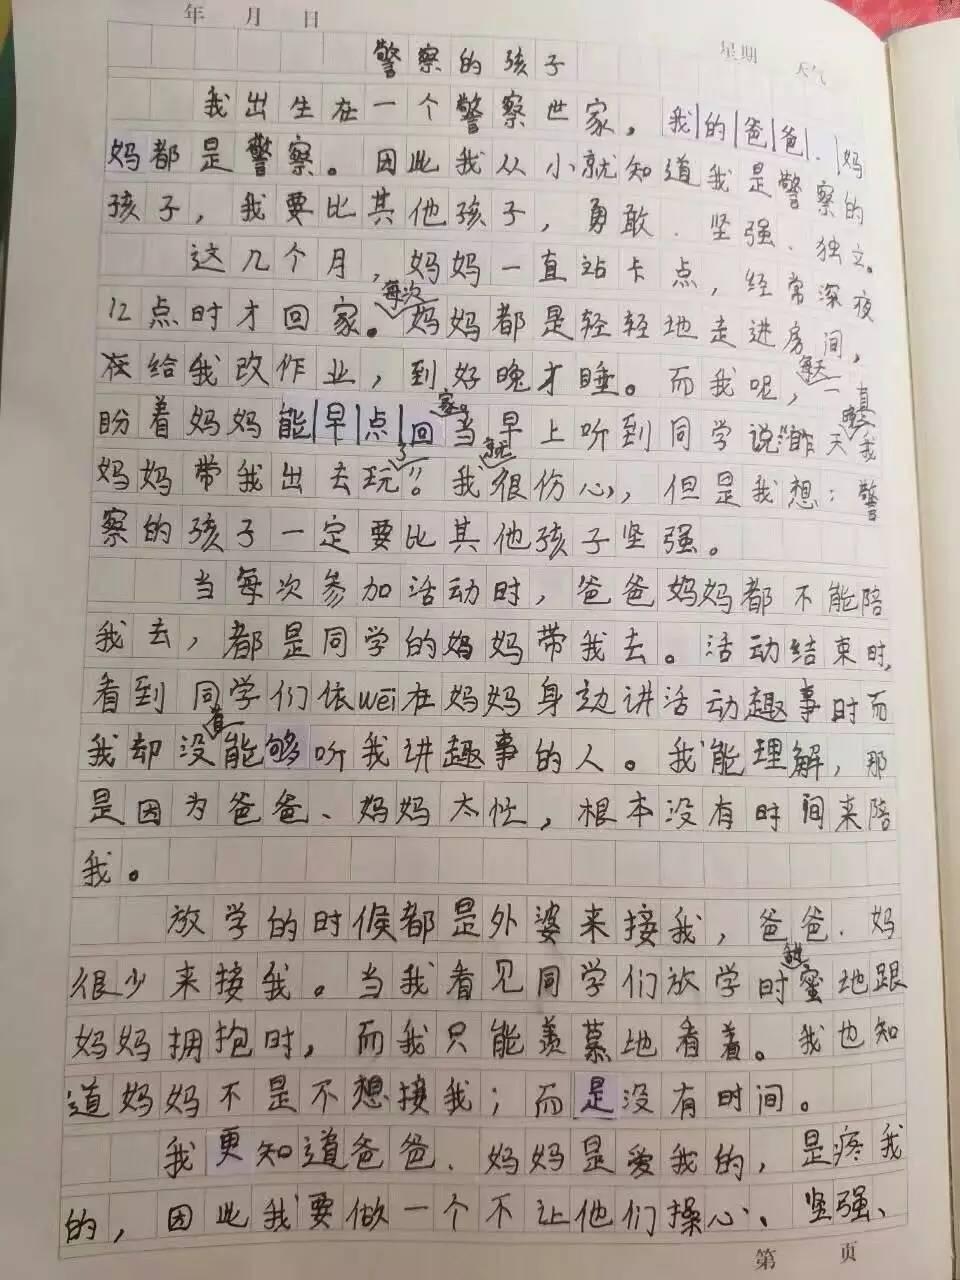 年 月 日
星期 天气
警察的孩子
我出生在一个警察世家，我的爸爸、妈
妈都是警察。因此我从小就知道我是警察的
孩子，我要比其他孩子，勇敢、坚强、独立。
这几个月，妈妈一直站卡点，经常深夜
12点时才回家。每次妈妈都是轻轻地走进房间，
在给我改作业，到好晚才睡。而我呢，每天一直
盼着妈妈能早点回家。当早上听到同学说“昨天晚我
妈妈带我出去玩了”。我就很伤心，但是我想：警
察的孩子一定要比其他孩子坚强。
当每次参加活动时，爸爸妈妈都不能陪
我去，都是同学的妈妈带我去。活动结束时，
看到同学们依wei在妈妈身边讲活动趣事时而
我却没有能够听我讲趣事的人。我能理解，那
是因为爸爸、妈妈太忙，根本没有时间来陪
我。
放学的时候都是外婆来接我，爸爸、妈
很少来接我。当我看见同学们放学时甜蜜地跟
妈妈拥抱时，而我只能羡慕地看着。我也知
道妈妈不是不想接我；而是没有时间。
我更知道爸爸、妈妈是爱我的，是疼我
的，因此我要做一个不让他们操心、坚强、
第 页